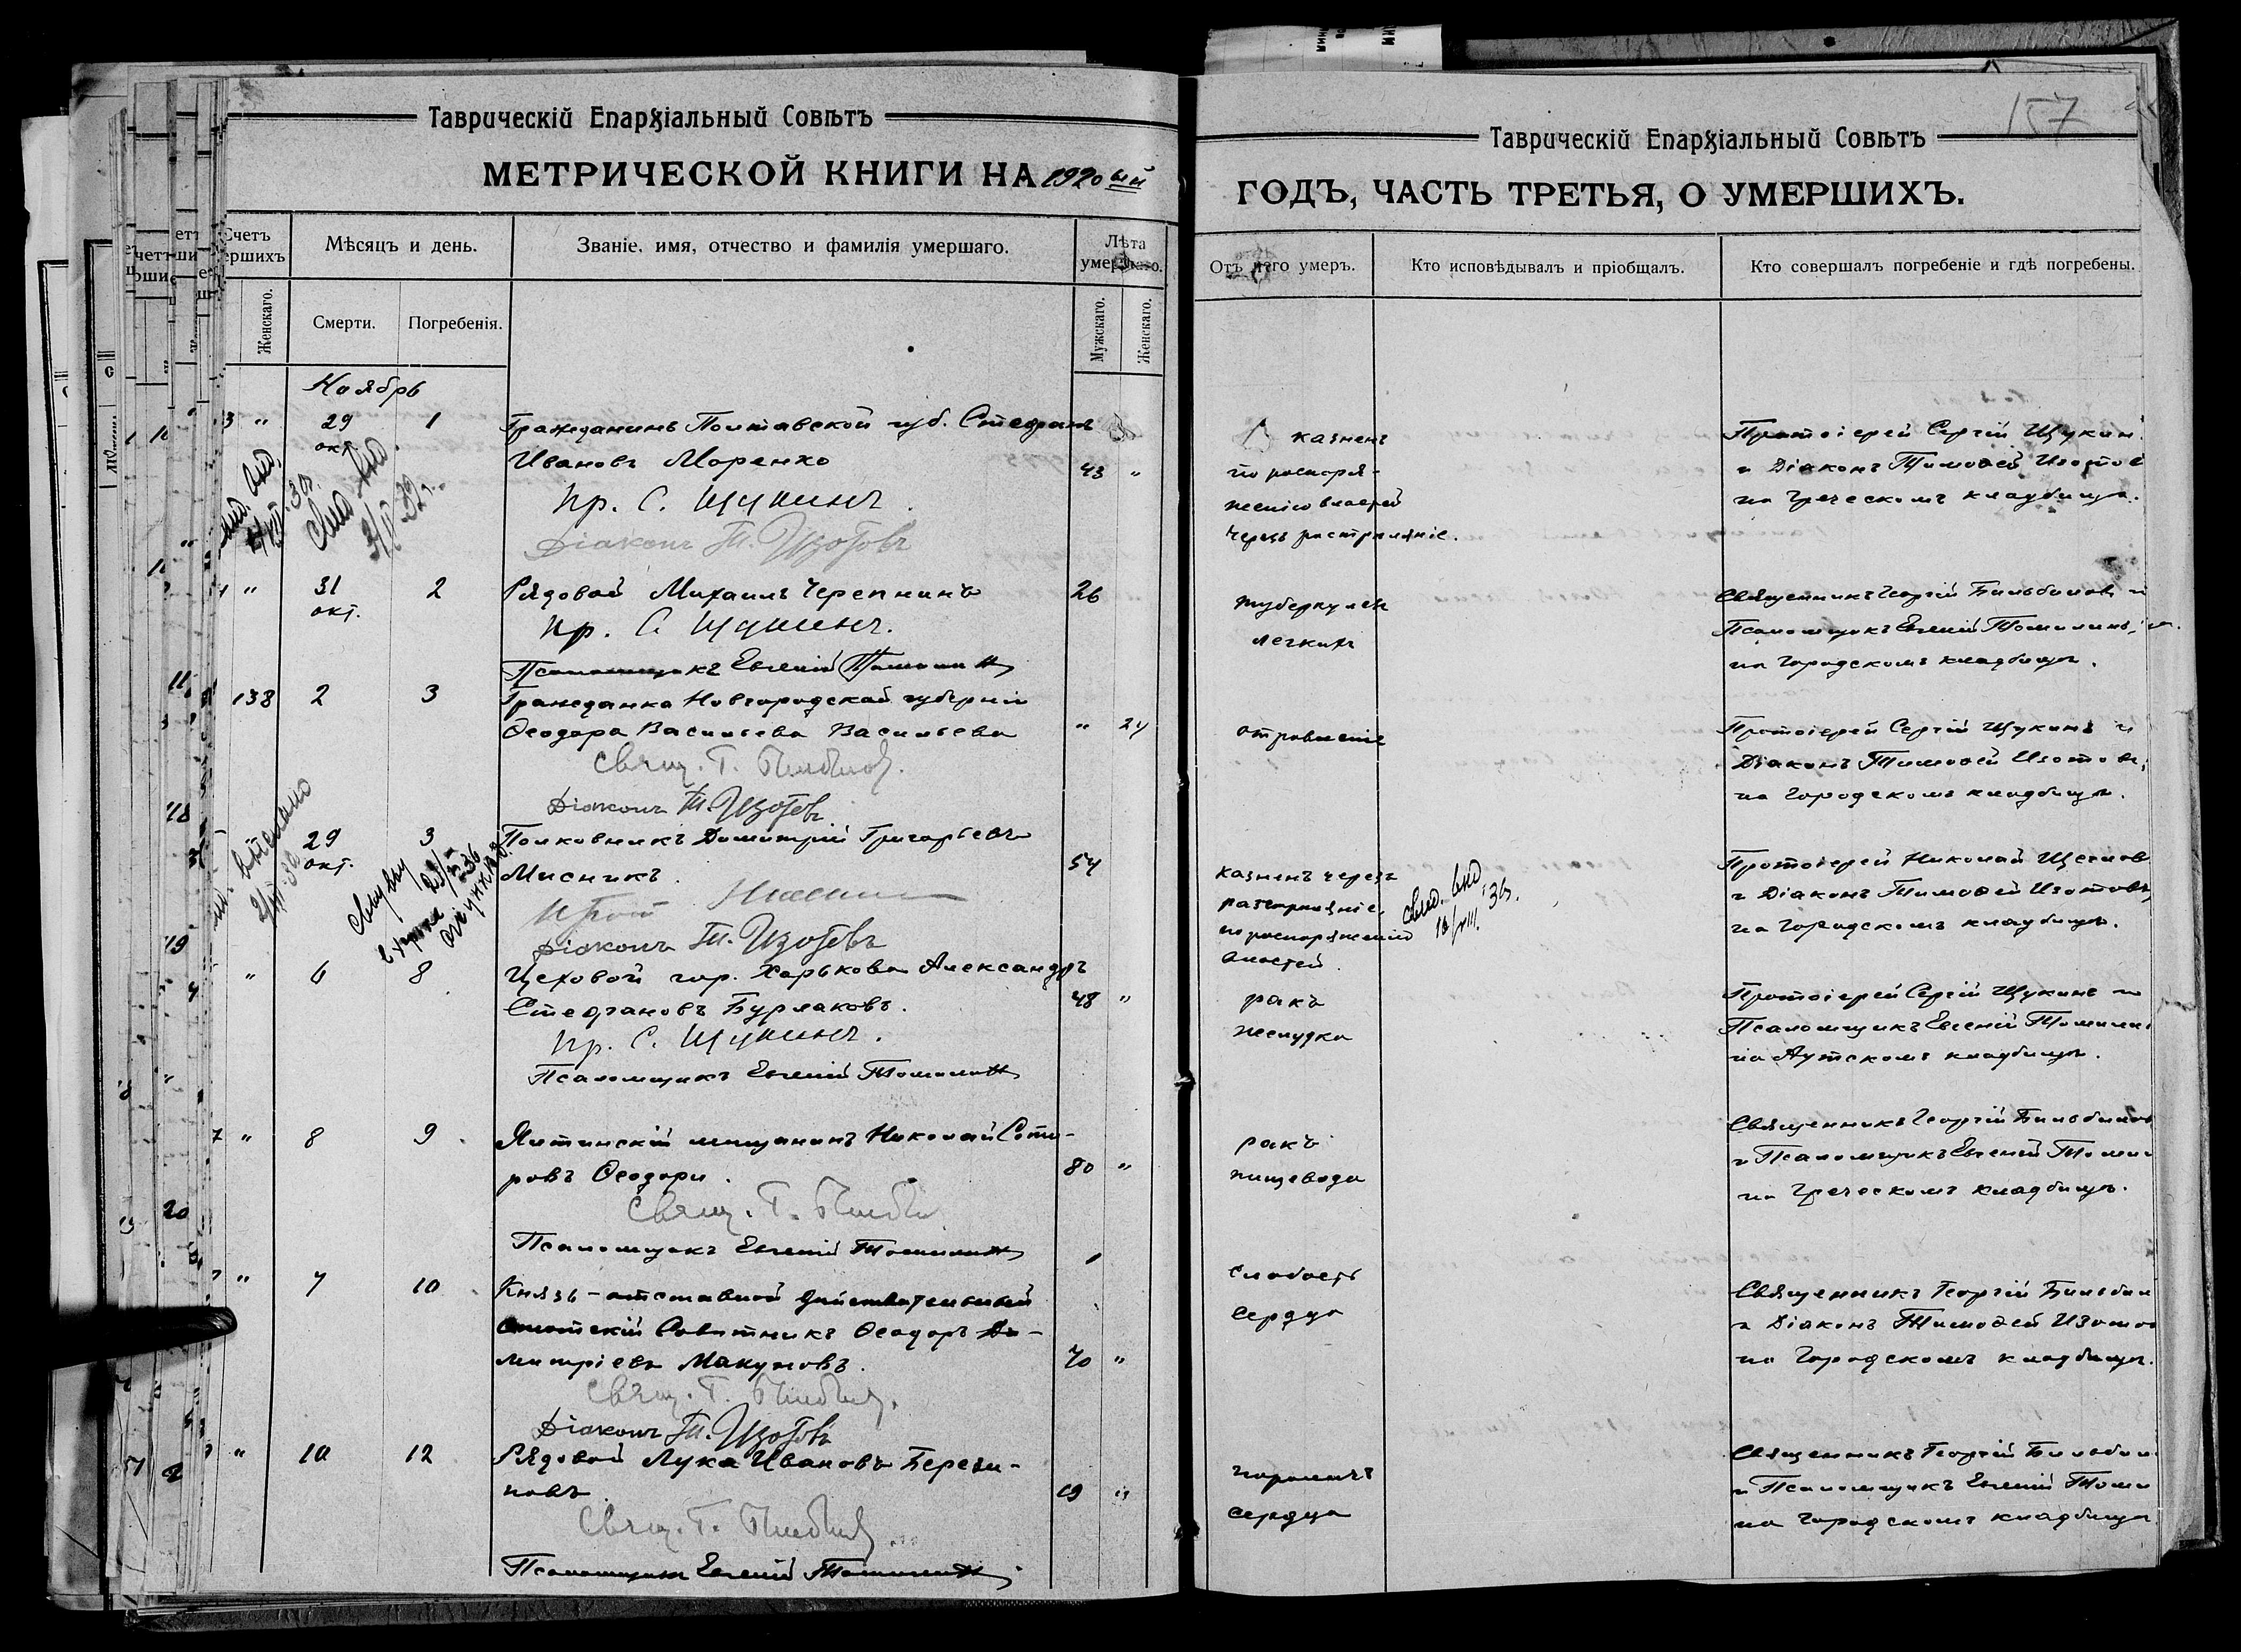 Таврическій Епархіальный Совѣтъ
МЕТРИЧЕСКОЙ КНИГИ НА 1920 ый
Счетъ
умершихъ
Мѣсяцъ и день.
Званіе, имя, отчество и фамилія умершаго.
Лѣта
умершаго.
Женскаго.
Смерти.
Погребенія.
Мужскаго.
Женскаго.
Ноябрь
" 29 окт. 1
Гражданинъ Полтавской губ. Стефанъ
Ивановъ Моренко
43 "
Пр. С. Щукинъ.
Діаконъ Т. Изотовъ
" 31 окт. 2
Рядовой Михаилъ Черепнинъ
26
Пр. С. Щукинъ.
Псаломщикъ Евгеній Томилинъ
138 2 3
Гражданка Новгородской губерніи
Ѳеодора Васильева Васильева
" 24
Свящ. Г.
Діаконъ Т. Изотовъ
29 окт. 3
Полковникъ Димитрій Григорьевъ
Мисникъ.
54
Прот.
Діаконъ Т. Изотовъ
" 6 8
Цеховой гор. Харькова Александръ
Стефановъ Бурлаковъ.
48 "
Пр. С. Щукинъ.
Псаломщикъ Евгеній Томилинъ
" 8 9
Ялтинскій мѣщанинъ Николай Соти-
ровъ Ѳеодори.
80 "
Свящ. Г.
Псаломщикъ Евгеній Томилинъ
" 7 10
Князь - отставной Дѣйствительный
Статскій Совѣтникъ Ѳеодоръ Ди-
митріевъ Макуловъ.
70 "
Свящ. Г.
Діаконъ Т. Изотовъ
" 10 12
Рядовой Лука Ивановъ Берези-
новъ
19 "
Свящ. Г.
Псаломщикъ Евгеній Томилинъ
157
Таврическій Епархіальный Совѣтъ
ГОДЪ, ЧАСТЬ ТРЕТЬЯ, О УМЕРШИХЪ.
Отъ чего умеръ.
Кто исповѣдывалъ и пріобщалъ.
Кто совершалъ погребеніе и гдѣ погребены.
казненъ
по распоря-
женію властей
черезъ разстрѣляніе.
Протоіерей Сергій Щукинъ
и Діаконъ Тимоѳей Изотов
на Греческомъ кладбищѣ.
туберкулезъ
легкихъ
Священникъ Георгій Бильбиновъ и
Псаломщикъ Евгеній Томилинъ,
на Городскомъ кладбищѣ.
отравленіе
Протоіерей Сергій Щукинъ и
Діаконъ Тимоѳей Изотовъ,
на Городскомъ кладбищѣ.
казненъ черезъ
разстрѣляніе,
по распоряженію
властей.
Протоіерей Николай Щегловъ
и Діаконъ Тимоѳей Изотовъ,
на Городскомъ кладбищѣ.
ракъ
желудка
Протоіерей Сергій Щукинъ и
Псаломщикъ Евгеній Томилин
на Аутскомъ кладбищѣ.
ракъ
пищевода
Священникъ Георгій Бильбинов
и Псаломщикъ Евгеній Томил
на Греческомъ кладбищѣ.
слабость
сердца
Священникъ Георгій Бильбин
и Діаконъ Тимоѳей Изотов
на Городскомъ кладбищѣ.
параличъ
сердца
Священникъ Георгій Бильбин
и Псаломщикъ Евгеній Томи
на Городскомъ кладбищѣ